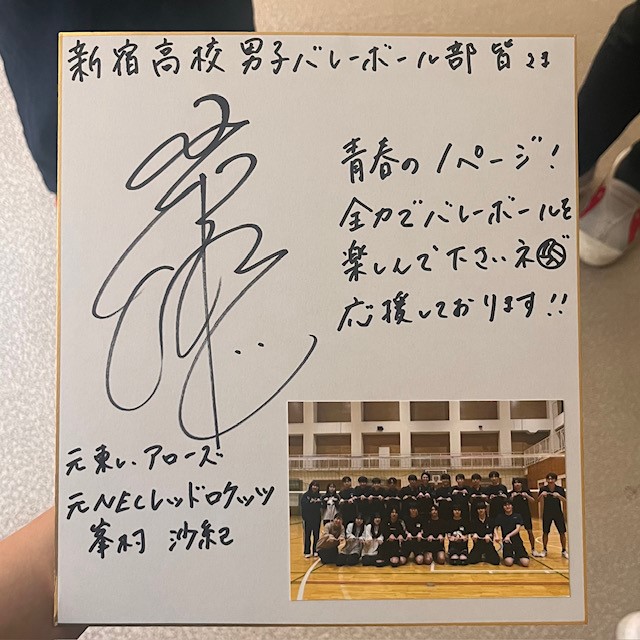 新宿高校 男子バレーボール部 皆さま
青春の1ページ!
全力でバレーボールを
楽しんで下さいネ
応援しております!!
元東レアローズ
元NECレッドロケッツ
峯村 沙紀